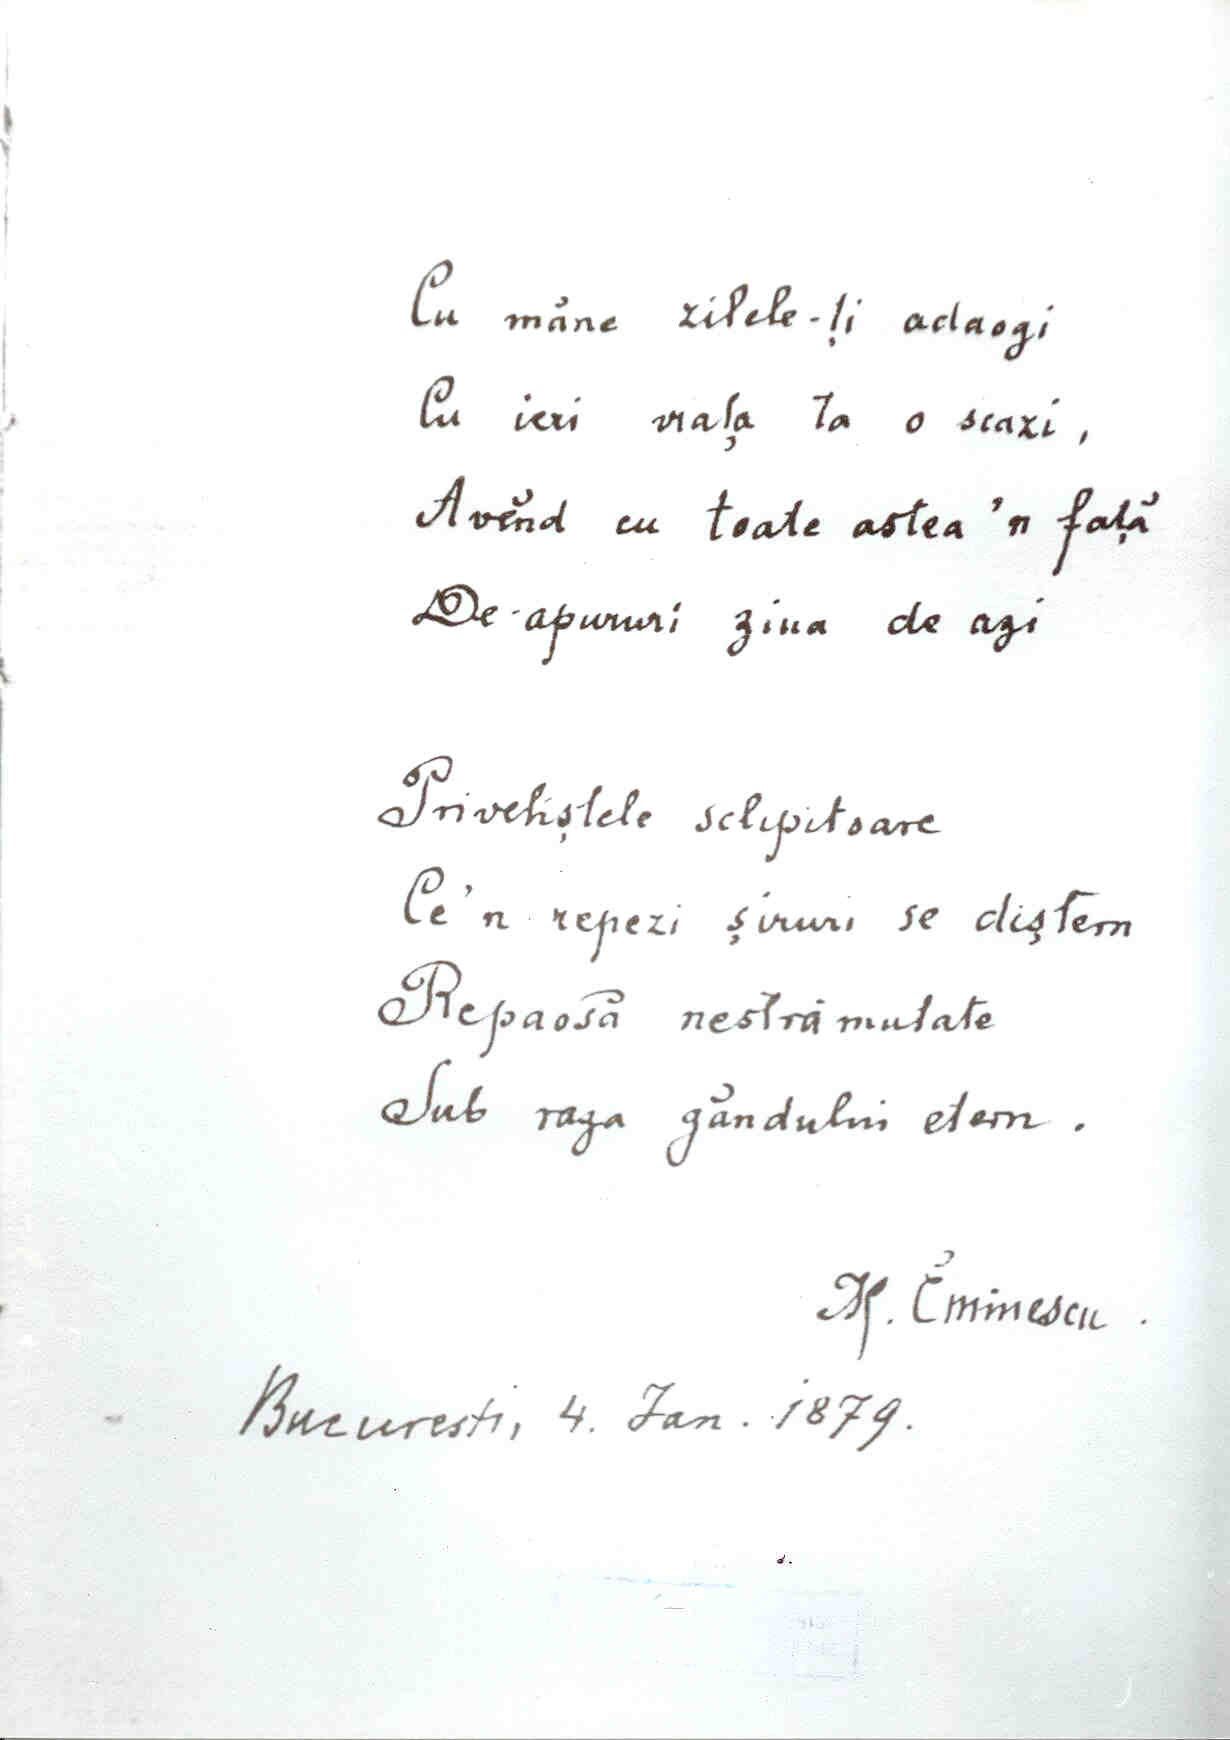 Cu măne zilele-ți adaogi
Cu ieri viața ta o scazi,
Avĕnd cu toate astea 'n față
De-apururi ziua de azi
Priveliștele sclipitoare
Ce'n repezi șiruri se diștern
Repaosă nestrămutate
Sub raza găndului etern.
M. Eminescu.
Bucuresti, 4. Ian. 1879.